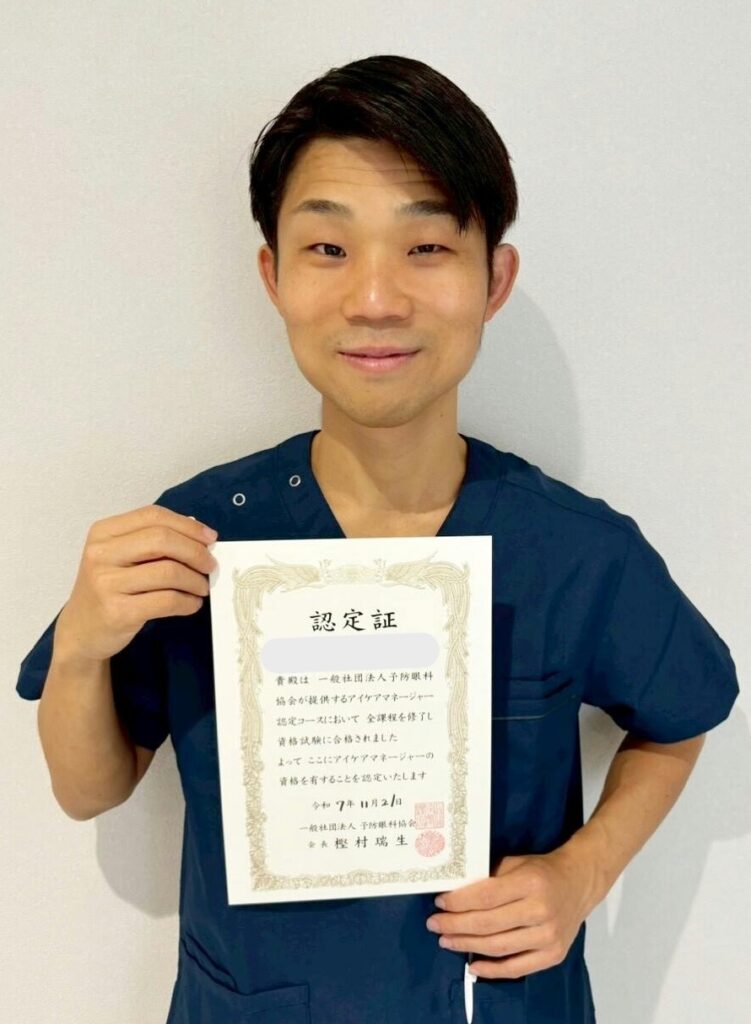 認定証
貴殿は 一般社団法人予防眼科
協会が提供するアイケアマネージャー
認定コースにおいて 全課程を修了し
資格試験に合格されました
よって ここにアイケアマネージャーの
資格を有することを認定いたします
令和7年11月21日
一般社団法人 予防眼科協会
会長 樫村瑞生